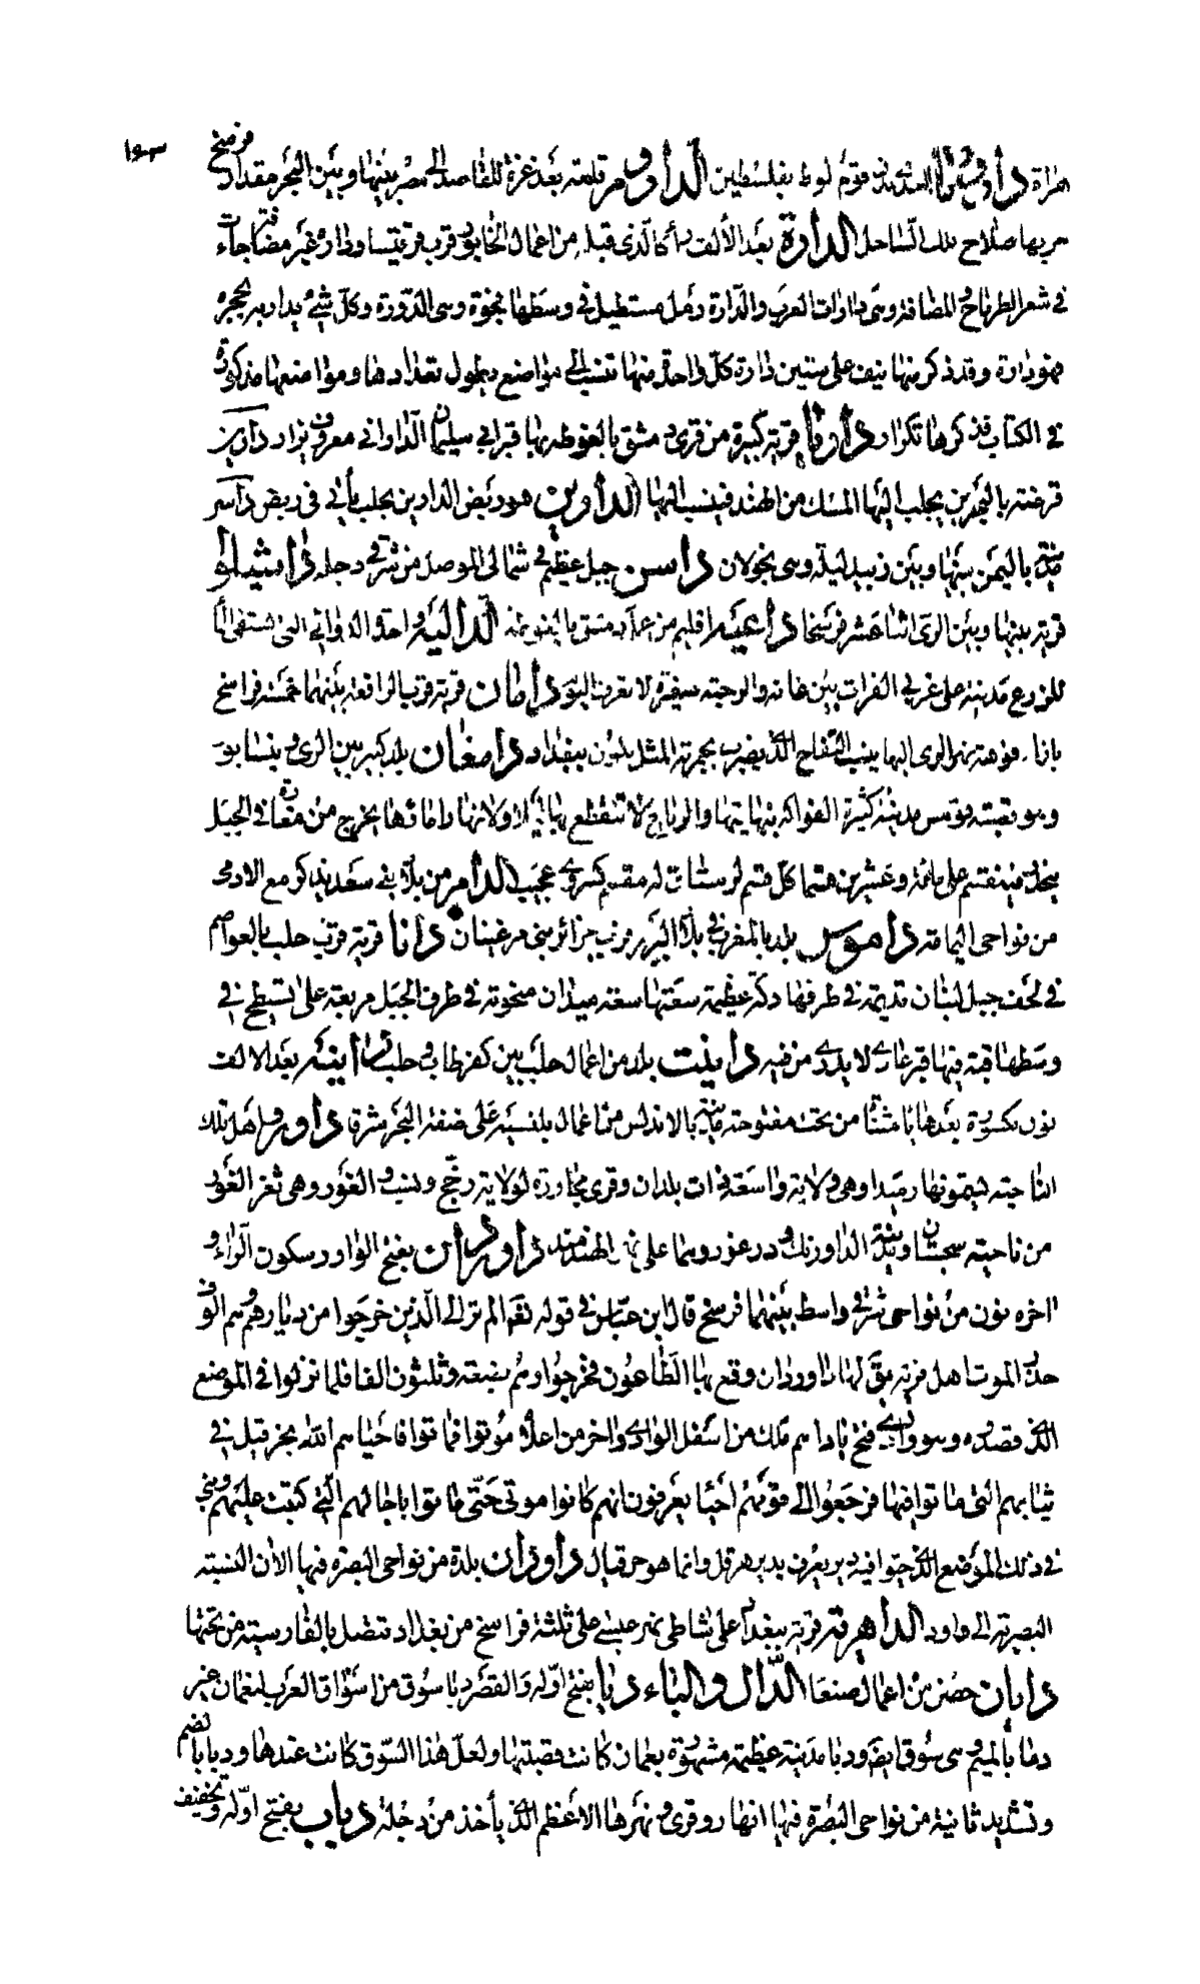 ١٥٣
هراة دا قوم لوط بفلسطين الداروم قلعة بعد غزة للقاصد الى مصر بينها وبين البحر مقدار فرسخ
خربها صلاح ملك الساحل الدارة بعد الألف راء كالذى قبله من اعمال الخابور قرب قرقيسا ودارة غير مضافة جات
فى شعر الطرماح المضافة وهى دارات العرب والدارة رمل مستطيل فى وسطها فجوة وهى الدورة وكل شئ يدار به يحجره
فهو دارة وقد ذكر منها نيف على ستين دارة كل واحدة منها تنسب الى مواضع يطول تعدادها ومواضعها مذكورة
فى الكتاب فذكرها تكرار داريا قرية كبيرة من قرى دمشق بالغوطة بها قبر ابى سليمان الدارانى معروف يزار دارين
فرضة بالبحرين يجلب اليها المسك من الهند فينسب اليها الدارين هو ربض الدارين بحلب يأتى فى ربض داسر
مدينة باليمن بينها وبين زبيد ليلة وهى بخولان داسن جبل عظيم فى شمالى الموصل من شرقى دجلة داشيلو
قرية بينها وبين الرى اثنا عشر فرسخا داعية اقليم من اعمال دمشق بالغوطة الدالية واحدة الدوالى التى يستقى بها
للزرع مدينة على غربى الفرات بين عانة والرحبة صغيرة لا تعرف اليوم دامان قرية قرب الرافقة بينهما خمسة فراسخ
بازاء فوهة نهر الرى اليها ينسب التفاح الذى يضرب بحمرته المثل يكون ببغداد دامغان بلد كبير بين الرى ونيسابور
وهو قصبة قومس مدينة كثيرة الفواكه بنهايتها والرياح لا تنقطع بها ليلا ولا نهارا وماؤها يخرج من مغارة فى الجبل
ينحدر فينقسم على مائة وعشرين قسما كل قسم لرستاق له مقسم كسروى عجيب الدام من بلاد بنى سعد يذكر مع الادمى
من نواحى اليمامة داموس بلد بالمغرب فى بلاد البربر قرب جزائر بنى مرغينان دانا قرية قرب حلب بالعواصم
فى لحف جبل لبنان قديمة فى طرفها دكة عظيمة سعتها سعة ميدان منحوتة فى طرف الجبل مربعة على تسطيح فى
وسطها قبة فيها قبر عادى لا يدرى من فيه دانيث بلد من اعمال حلب بين كفرطاب وحلب دانية بعد الالف
نون مكسورة بعدها ياء مثناة من تحت مفتوحة مدينة بالاندلس من اعمال بلنسية على ضفة البحر شرقا داور واهل تلك
الناحية يسمونها زميداور وهى ولاية واسعة ذات بلدان وقرى مجاورة لولاية رخج وبست والغور وهى ثغر الغور
من ناحية سجستان ومدينة الداور تل ودرغور وهما على نهر الهندمند داوردان بفتح الواو وسكون الراء و
اخره نون من نواحى شرقى واسط بينهما فرسخ قال ابن عباس فى قوله تعالى الم تر الى الذين خرجوا من ديارهم وهم الوف
حذر الموت اهل قرية يقال لها داوردان وقع بها الطاعون فخرجوا وهم بضعة وثلثون الفا فلما نزلوا فى الموضع
الذى قصدوه وهو وادى فيح ناداهم ملك من اسفل الوادى واخر من اعلاه موتوا فماتوا فاحياهم الله بحزقيل فى
ثيابهم التى ماتوا فيها فرجعوا الى قومهم احيا يعرفون انهم كانوا موتى حتى ماتوا باجالهم التى كتبت عليهم وبنى
فى ذلك الموضع الذى حيوا فيه دير يعرف بدير هرقل وانما هو حزقيل داوران بلدة من نواحى البصرة فيها الان النسبة
البصرية الى داود الداهرية قرية ببغداد على شاطى نهر عيسى على ثلثة فراسخ من بغداد تتصل بالفارسية من تحتها
دايان حصن من اعمال صنعا الدال والباء دبا بفتح اوله والقصر دبا سوق من اسواق العرب بعمان غير
دما بالميم وهى سوق ايضا ودبا مدينة عظيمة مشهورة بعمان كانت قصبتها ولعل هذا السوق كانت عندها ودبا بالضم
وتشديد ثانية من نواحى البصرة فيها انهار وقرى ونهرها الاعظم الذى يأخذ من دجلة دباب بفتح اوله وتخفيف